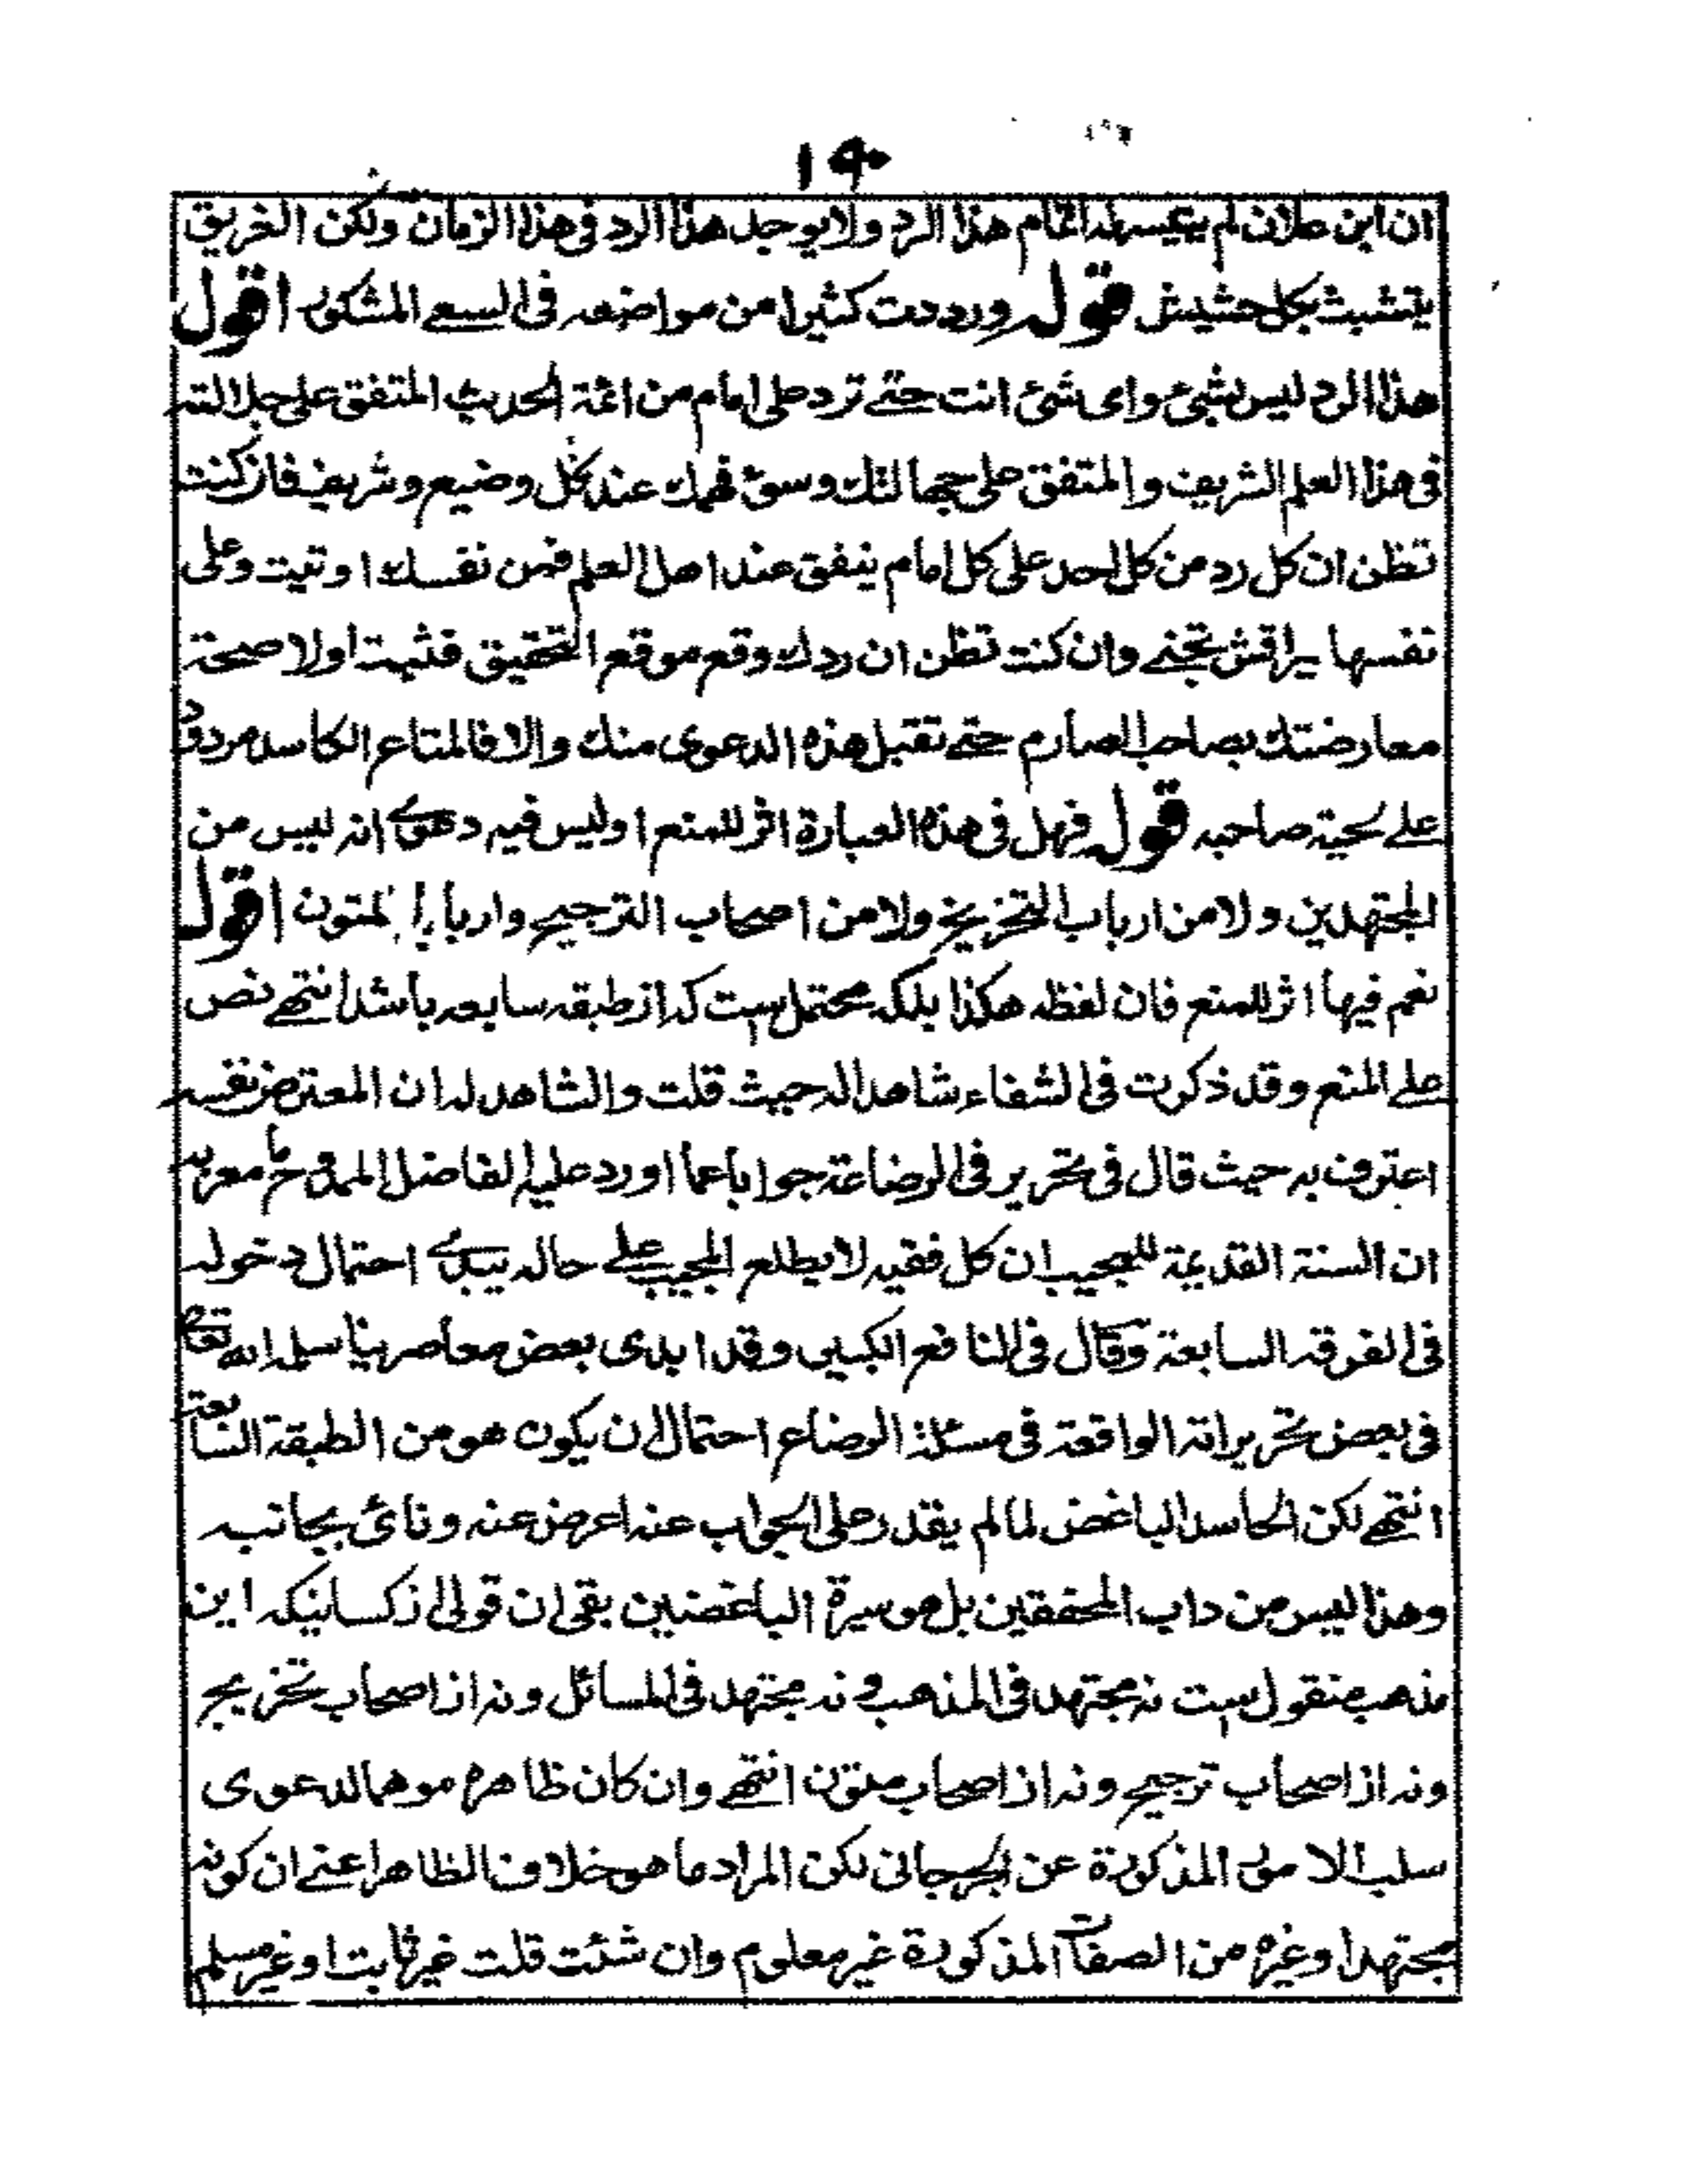 ان ابن علان لم يتيسر له اتمام هذا الرد ولا يوجد هذا الرد فى هذا الزمان ولكن الغريق
يتشبث بكل حشيش قوله ورددت كثيرا من مواضعه فى السعى المشكور اقول
هذا الرد ليس بشئ واى شئ انت حتے ترد على امام من ائمة الحديث المتفق على جلالته
فى هذا العلم الشريف والمتفق على جهالتك وسوء فهمك عند كل وضيع وشريف فان كنت
تظن ان كل رد من كل احد على كل امام ينفق عند اهل العلم فمن نفسك اوتيت وعلى
نفسها براقش تجنے وان كنت تظن ان ردك وقع موقع التحقيق فثبت اولا صحة
معارضتك بصاحب الصارم حتے تقبل هذه الدعوى منك والا فالمتاع الكاسد مردود
علے لحية صاحبه قوله فهل فى هذه العبارة اثر للمنع اوليس فيه دعوے انه ليس من
المجتهدين ولا من ارباب التخريج ولا من اصحاب الترجيح وارباب المتون اقول
نعم فيها اثر للمنع فان لفظه هكذا بلكه محتمل ست كه از طبقه سابعه باشد انتهے نص
علے المنع وقد ذكرت فى الشفاء شاهدا له حيث قلت والشاهد له ان المعترض نفسه
اعترف به حيث قال فى تحرير فى الرضاعة جوابا عما اورد عليه الفاضل الممدوح ما معربه
ان السنة القديمة للمجيب ان كل فقيه لا يطلع المجيب علے حاله يبدے احتمال دخوله
فى الفرقة السابعة وقال فى النافع الكبير وقد ابدى بعض معاصرينا سلمه الله تعالے
فى بعض تحريراته الواقعة فى مسئلة الرضاع احتمال ان يكون هو من الطبقة السابعة
انتهے لكن الحاسد الباغض لما لم يقدر على الجواب عنه اعرض عنه ونائ بجانبه
وهذا ليس من داب المحققين بل هو سيرة الباغضين بقى ان قولى از كسانيكه اين
مذهب منقول ست نه مجتهد فى المذهب و نه مجتهد فى المسائل و نه از اصحاب تخريج
و نه از اصحاب ترجيح و نه از اصحاب متون انتهے وان كان ظاهره موهما لدعوى
سلب الامور المذكورة عن الجرجانى لكن المراد ما هو خلاف الظاهر اعنے ان كونه
مجتهدا وغيره من الصفات المذكورة غير معلوم وان شئت قلت غير ثابت او غير مسلم